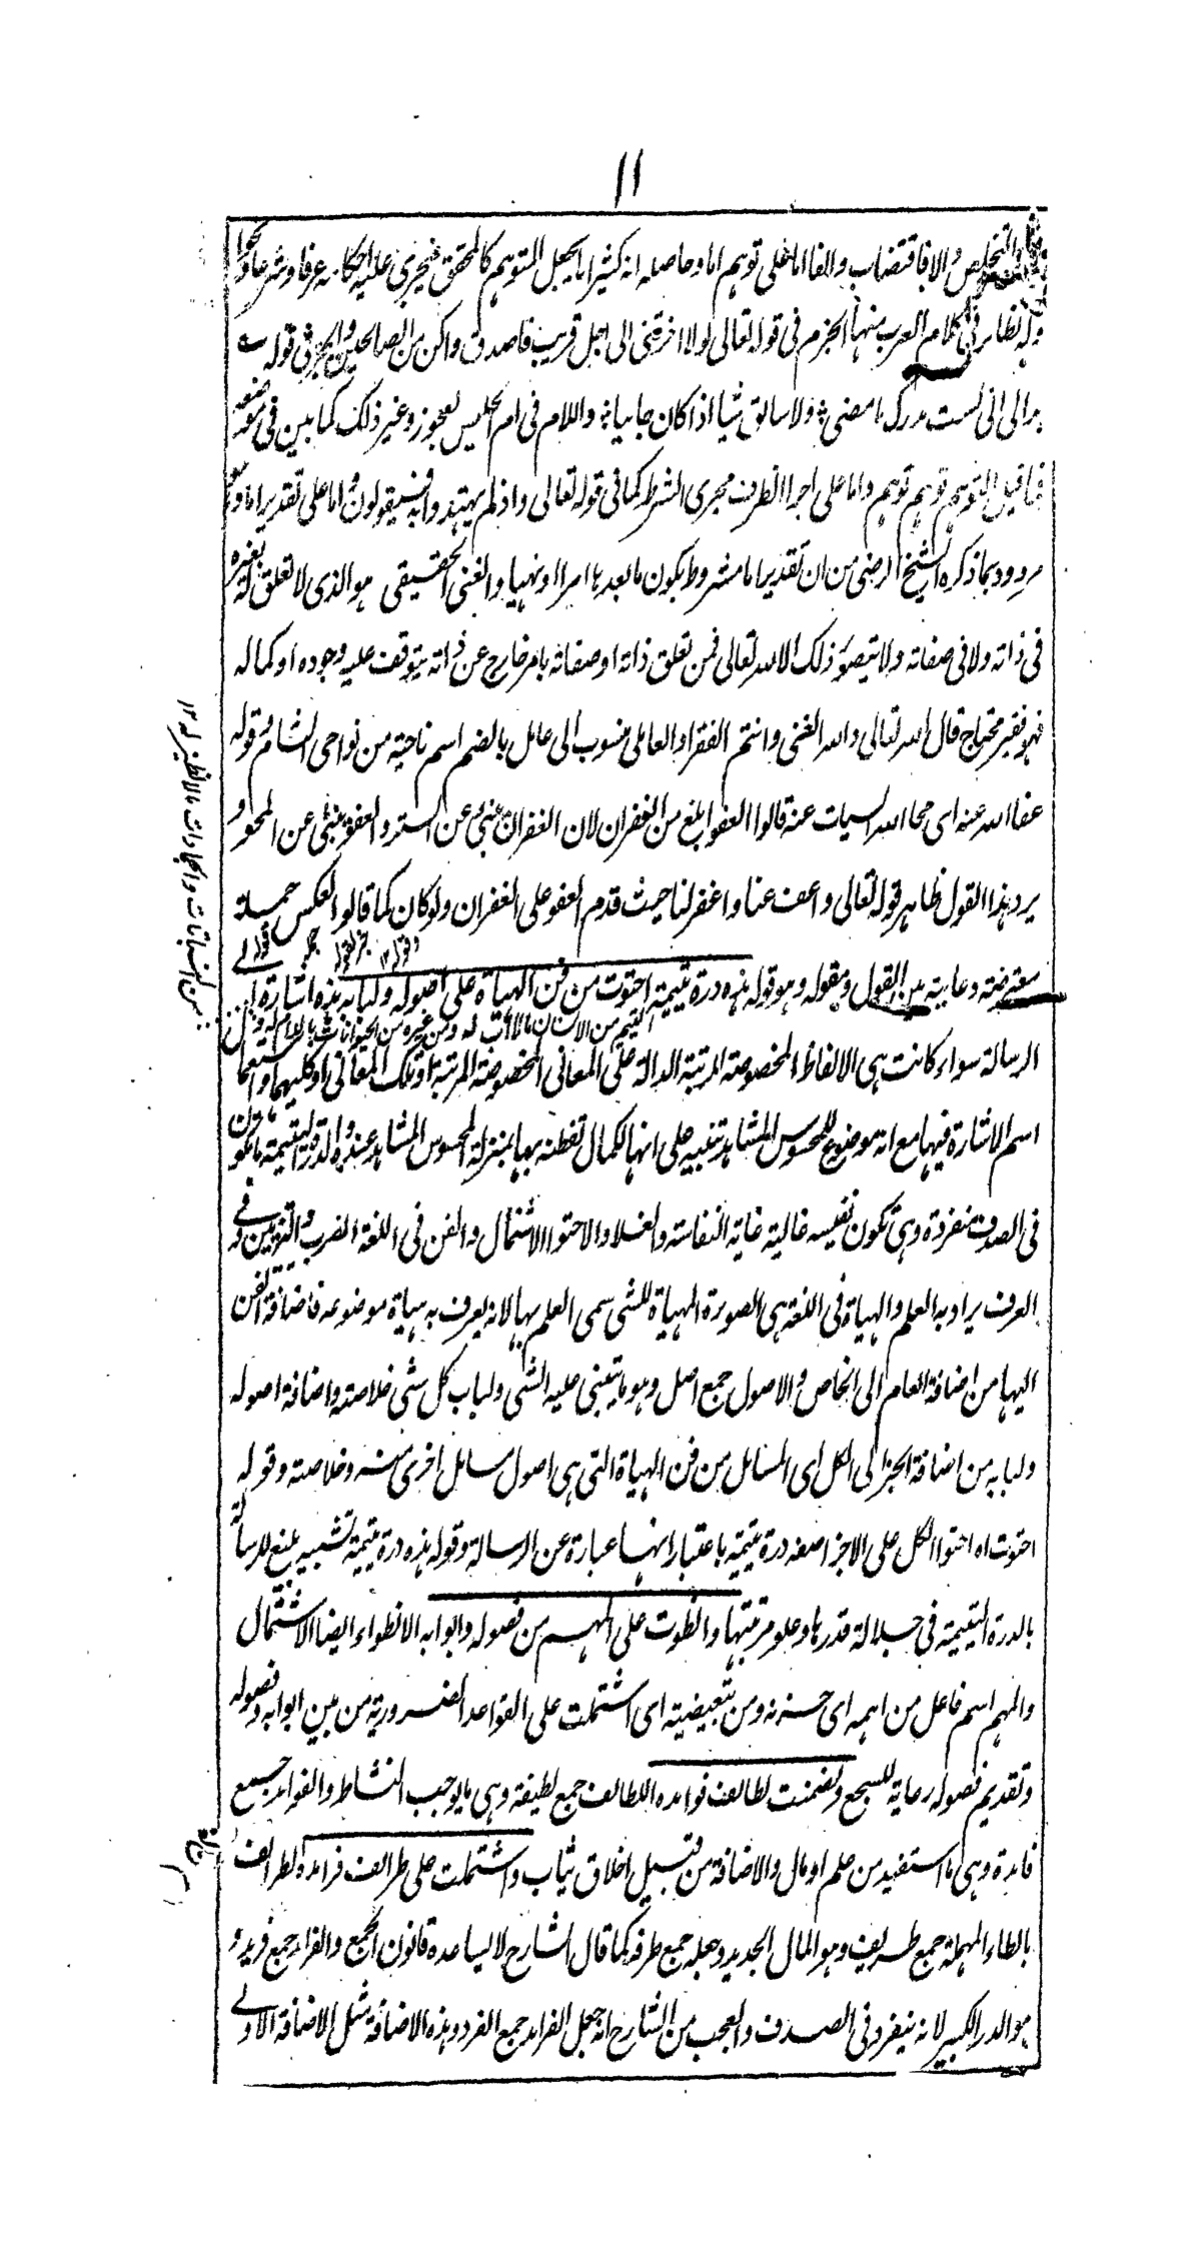 ١١
والتخلص والا فاقتضاب والفا اما على توهم اما وحاصله انه كثيرا ما يجعل المتوهم كالمحقق فيجرى عليه احكامه عرفا وشرعا ونحوا
وله نظائر فى كلام العرب منها الجزم فى قوله تعالى لولا اخرتنى الى اجل قريب فاصدق واكن من الصالحين والجر فى قوله ؎
بدا لى انى لست مدرك ما مضى ؛ ولا سابق شيا اذا كان جائيا ؛ واللام فى ام الحليس لعجوز وغير ذلك كما بين فى موضعه
فما قيل التوهم توهم توهم واما على اجرا الظرف مجرى الشرط كما فى قوله تعالى واذ لم يهتدوا به فسيقولون واما على تقدير اما و
مردود بما ذكره الشيخ الرضى من ان تقدير اما مشروط بكون ما بعدها امرا او نهيا والغنى الحقيقى هو الذى لا تعلق له بغيره
فى ذاته ولا فى صفاته ولا يتصور ذلك الا لله تعالى فمن تعلق ذاته او صفاته بامر خارج عن ذاته يتوقف عليه وجوده او كماله
فهو فقير محتاج قال الله تعالى والله الغنى وانتم الفقراء والعاملى منسوب الى عامل بالضم اسم ناحية من نواحى الشام وقوله
عفا الله عنه اى محا الله السيات عنه قالوا العفو ابلغ من الغفران لان الغفران ينبئ عن الستر والعفو ينبئ عن المحو و
يرد هذا القول ظاهر قوله تعالى واعف عنا واغفر لنا حيث قدم العفو على الغفران ولو كان كما قالوا لعكس جملة
معترضة دعائية بين القول ومقوله وهو قوله هذه درة يتيمة احتوت من فن الهياة على اصوله ولبابه هذه اشارة الى
الرسالة سواء كانت هى الالفاظ المخصوصة المرتبة الدالة على المعانى المخصوصة المرتبة او تلك المعانى او كليهما واستعمال
اسم الاشارة فيها مع انه موضوع للمحسوس المشاهد تنبيه على انها لكمال تفطنه بها بمنزلة المحسوس المشاهد عنده والدرة اليتيمة ما تكون
فى الصدف منفردة وهى تكون نفيسه غالية غاية النفاسة والغلاء والاحتوا الاشتمال والفن فى اللغة الضرب والتزيين وفى
العرف يراد به العلم والهياة فى اللغة هى الصورة المهياة للشى سمى العلم بها لانه يعرف به هياة موضوعه فاضافة الفن
اليها من اضافة العام الى الخاص والاصول جمع اصل وهو ما يبتنى عليه الشى ولباب كل شى خلاصته واضافة اصوله
ولبابه من اضافة الجزء الى الكل اى المسائل من فن الهياة التى هى اصول مسائل اخرى منه وخلاصته وقوله
احتوت اه احتوا الكل على الاجزا صفه درة يتيمة باعتبار انها عبارة عن الرسالة وقوله هذه درة يتيمة تشبيه بليغ للرسالة
بالدرة اليتيمة فى جلالة قدرها وعلو مرتبتها وانطوت على المهم من فصوله وابوابه الانطواء ايضا الاشتمال
والمهم اسم فاعل من اهمه اى حزنه ومن تبعيضية اى اشتملت على القواعد الضرورية من بين ابوابه وفصوله
وتقديم فصوله رعاية للسجع وتضمنت لطائف فوائده اللطائف جمع لطيفة وهى ما يوجب النشاط والفوائد جمع
فائدة وهى ما استفيد من علم او مال والاضافة من قبيل اخلاق ثياب واشتملت على طرائف فرائده الطرائف
بالطاء المهملة جمع طريف وهو المال الجديد وجعله جمع طرفه كما قال الشارح لا يساعده قانون الجمع والفرائد جمع فريد و
هو الدر الكبير لانه ينفرد فى الصدف والعجب من الشارح انه جعل الفرائد جمع الفرد وهذه الاضافة مثل الاضافة الاولى